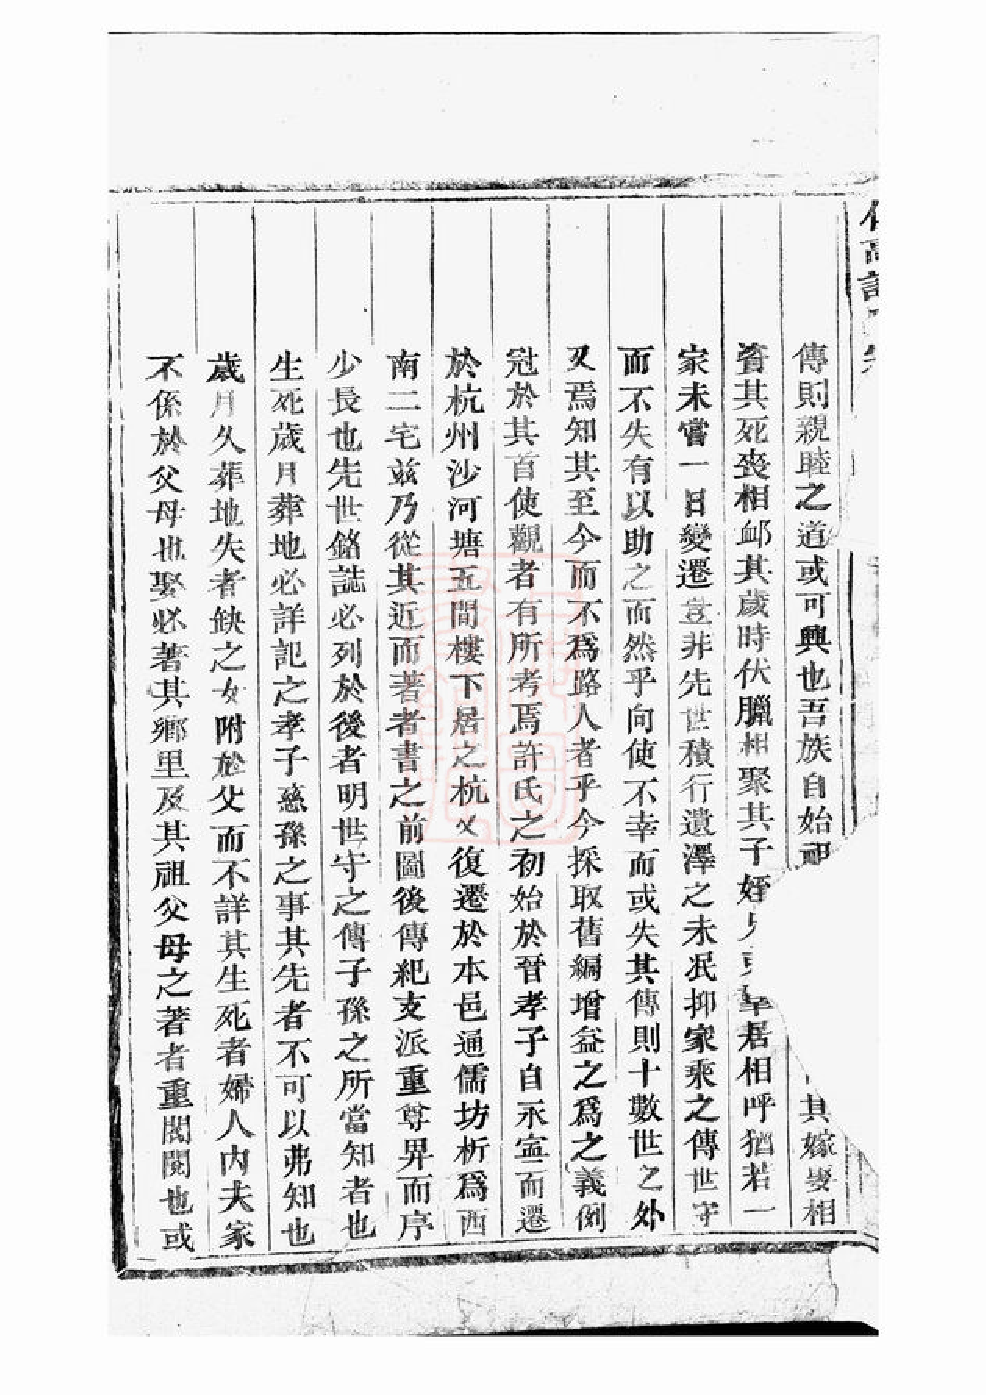 傳則親睦之道或可興也吾族自始祖其嫁娶相
資其死喪相邮其歲時伏臘相聚其子姪居相呼猶若一
家未嘗一日變遷豈非先世積行遺澤之未泯抑家乘之傳世守
而不失有以助之而然乎向使不幸而或失其傳則十數世之外
又焉知其至今而不爲路人者乎今採取舊編增益之爲之義例
冠於其首使觀者有所考焉許氏之初始於晉孝子自永寍而遷
於杭州沙河塘五間樓下居之杭父復遷於本邑通儒坊析爲西
南二宅玆乃從其近而著者書之前圖後傳紀支派重尊畀而序
少長也先世銘誌必列於後者明世守之傳子孫之所當知者也
生死歲月葬地必詳記之孝子慈孫之事其先者不可以弗知也
歲月久葬地失者缺之女附於父而不詳其生死者婦人内夫家
不係於父母也娶必著其鄉里及其祖父母之著者重閥閱也或